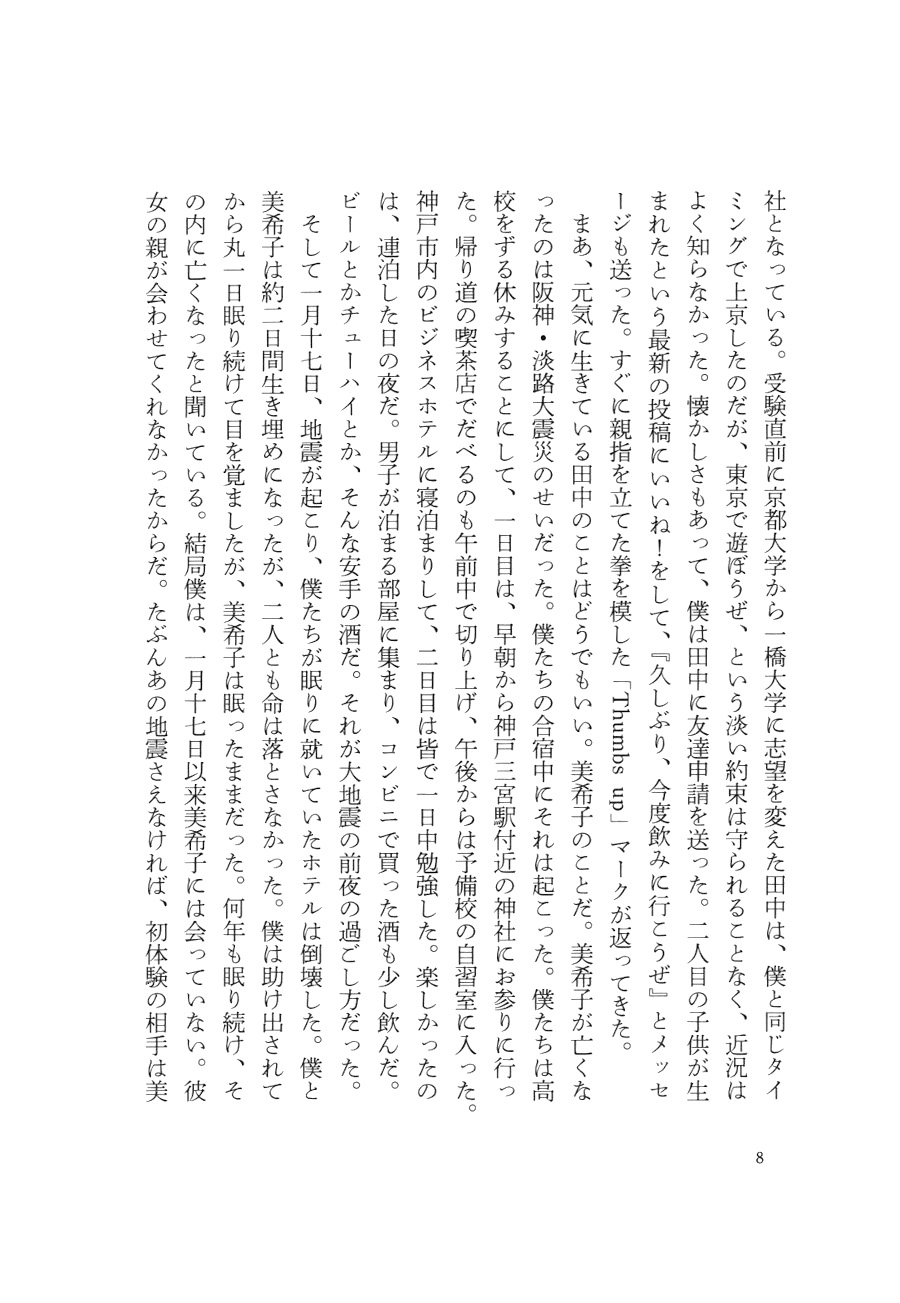 社となっている。受験直前に京都大学から一橋大学に志望を変えた田中は、僕と同じタイ
ミングで上京したのだが、東京で遊ぼうぜ、という淡い約束は守られることなく、近況は
よく知らなかった。懐かしさもあって、僕は田中に友達申請を送った。二人目の子供が生
まれたという最新の投稿にいいね！をして、『久しぶり、今度飲みに行こうぜ』とメッセ
ージも送った。すぐに親指を立てた拳を模した「Thumbs up」マークが返ってきた。
まあ、元気に生きている田中のことはどうでもいい。美希子のことだ。美希子が亡くな
ったのは阪神・淡路大震災のせいだった。僕たちの合宿中にそれは起こった。僕たちは高
校をずる休みすることにして、一日目は、早朝から神戸三宮駅付近の神社にお参りに行っ
た。帰り道の喫茶店でだべるのも午前中で切り上げ、午後からは予備校の自習室に入った。
神戸市内のビジネスホテルに寝泊まりして、二日目は皆で一日中勉強した。楽しかったの
は、連泊した日の夜だ。男子が泊まる部屋に集まり、コンビニで買った酒も少し飲んだ。
ビールとかチューハイとか、そんな安手の酒だ。それが大地震の前夜の過ごし方だった。
そして一月十七日、地震が起こり、僕たちが眠りに就いていたホテルは倒壊した。僕と
美希子は約二日間生き埋めになったが、二人とも命は落とさなかった。僕は助け出されて
から丸一日眠り続けて目を覚ましたが、美希子は眠ったままだった。何年も眠り続け、そ
の内に亡くなったと聞いている。結局僕は、一月十七日以来美希子には会っていない。彼
女の親が会わせてくれなかったからだ。たぶんあの地震さえなければ、初体験の相手は美
8